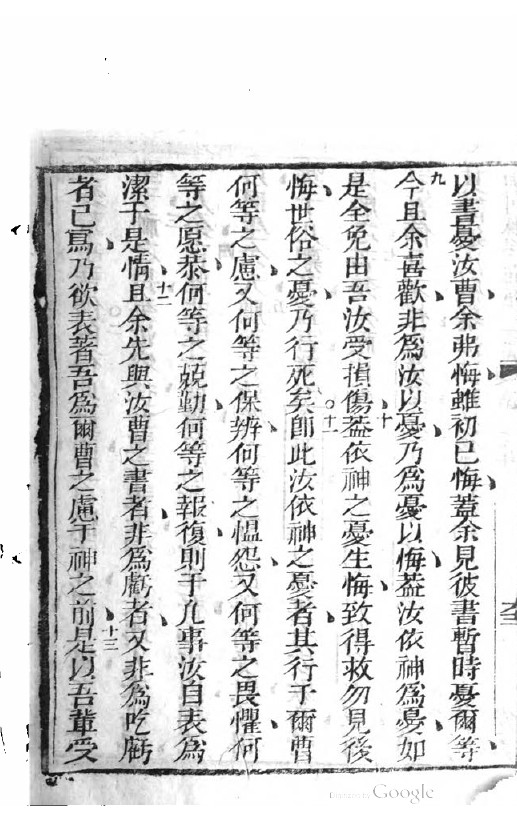 以書憂汝曹余弗悔雖初已悔蓋余見彼書暫時憂爾等
九今且余喜歡非為汝以憂乃為憂以悔蓋汝依神為憂如
是全免由吾汝受損傷十蓋依神之憂生悔致得救勿見後
悔世俗之憂乃行死矣○十一即此汝依神之憂者其行于爾曹
何等之慮又何等之保辨何等之愠怨又何等之畏懼何
等之愿恭何等之兢勤何等之報復則于凡事汝自表為
潔于是情十二且余先與汝曹之書者非為虧者又非為吃虧
者已寫乃欲表著吾為爾曹之慮于神之前十三是以吾輩受
Google